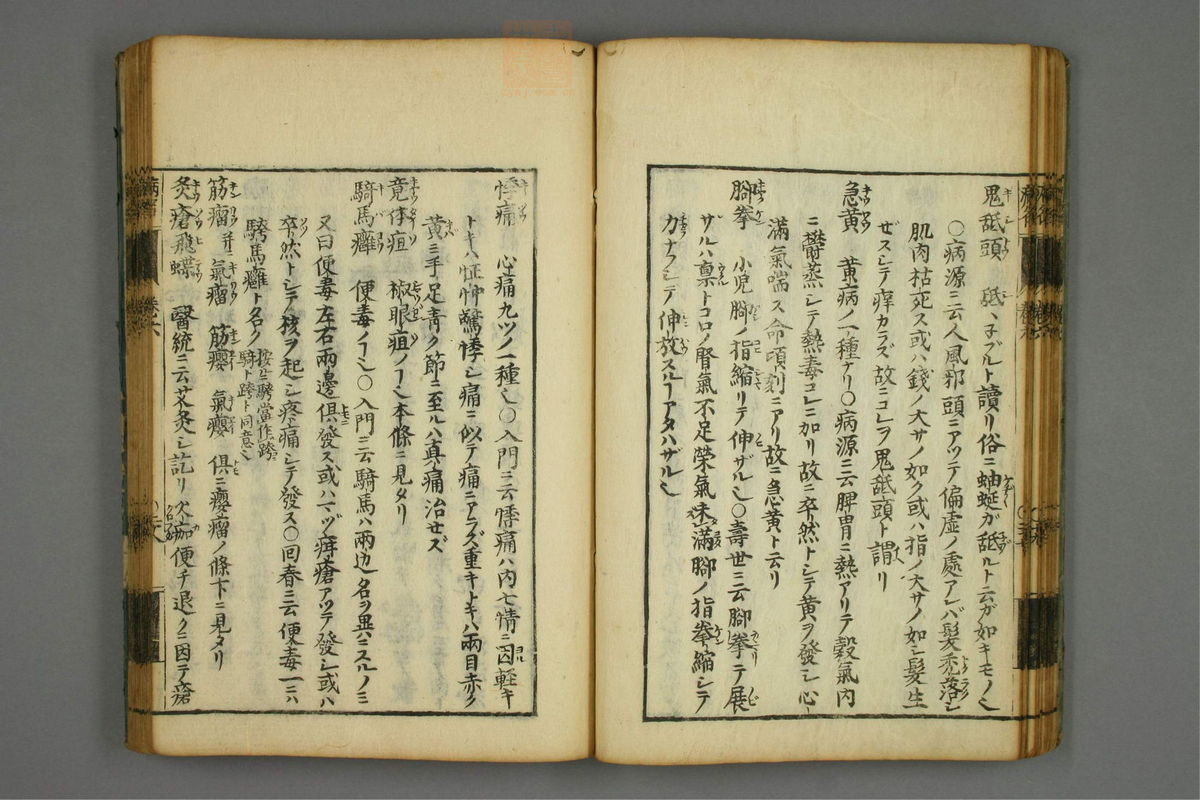 鬼舐頭 舐ハ子ブルト讀リ俗ニ蚰蜒ガ舐ルト云ガ如キモノ乄
〇病源ニ云人風邪頭ニアツテ偏虚ノ處アレバ髮禿落シ
肌肉枯死ス或ハ錢ノ大サノ如ク或ハ指ノ大サノ如シ髮生
ゼスシテ痒カラズ故ニコレヲ鬼舐頭ト謂リ
急黄 黄病ノ一種ナリ〇病源ニ云脾胃ニ熱アリテ穀氣内
ニ鬱蒸シテ熱毒コレニ加リ故ニ卒然トシテ黄ヲ發シ心
滿氣喘ス命頃刻ニアリ故ニ急黄ト云リ
脚拳 小児脚ノ指縮リテ伸ザル也〇壽世ニ云脚拳テ展
ザルハ禀トコロノ腎氣不足榮氣未滿脚ノ指拳縮シテ
カナラシテ伸放スルヿアタハザル也
悸痛 心痛九ツノ一種也〇入門ニ云悸痛ハ内七情ニ因軽キ
トキハ怔忡驚悸シ痛ニ似テ痛ニアラズ重キトキハ兩目赤ク
黄ミ手足青ク節ニ至ルハ真痛治セズ
竟体疽 椒眼疽ノヿ也本條ニ見タリ
騎馬癰 便毒ノヿ也〇入門ニ云騎馬ハ兩边名ヲ異ニスルノミ
又曰便毒左右兩邊倶發ス或ハマヅ疳瘡アツテ發シ或ハ
卒然トシテ核ヲ起シ疼痛シテ發ス〇回春ニ云便毒一ニハ
騎馬癰ト名ク 按ニ騎當作跨騎ト跨ト同意也
筋瘤并ニ氣瘤 筋癭 氣癭 倶ニ癭瘤ノ條下ニ見タリ
灸瘡飛蝶 醫統ニ云艾灸シ訖リ火痂便チ退クニ因テ瘡